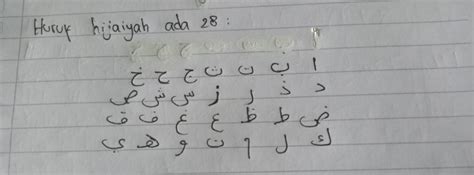 Huruf hijaiyah ada 28 :
ا ب ت ث ج ح خ
د ذ ر ز س ش ص
ض ط ظ ع غ ف ق
ك ل م ن و ه ي